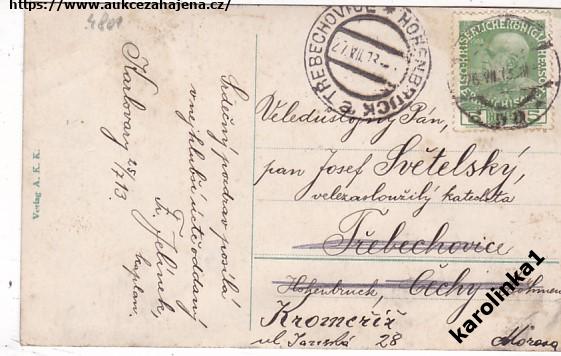 https://www.aukcezahajena.cz/
4801
Verlag A. K. K.
Karlovary 25/7 13.
Srdečný pozdrav posílá
v nejhlubší úctě oddaný
F. Jelínek,
kaplan.
TŘEBECHOVICE * HOHENBRUCK
27.VII.13
Veledůstojný Pán,
pan Josef Světelský,
velezasloužilý katecheta
Třebechovice
Hohenbruck, Čechy Böhmen
Kroměříž
ul. 28 Morava
karolinka1